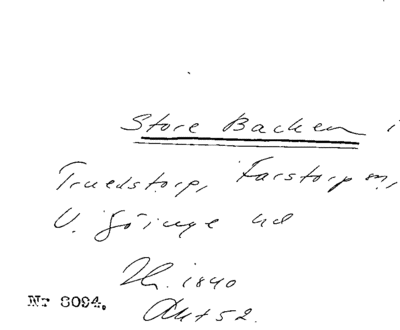 Store Backen i
Truedstorp, Farstorp sn,
V. Göinge hd
Th. 1840
Akt 52.
Nr 8094.